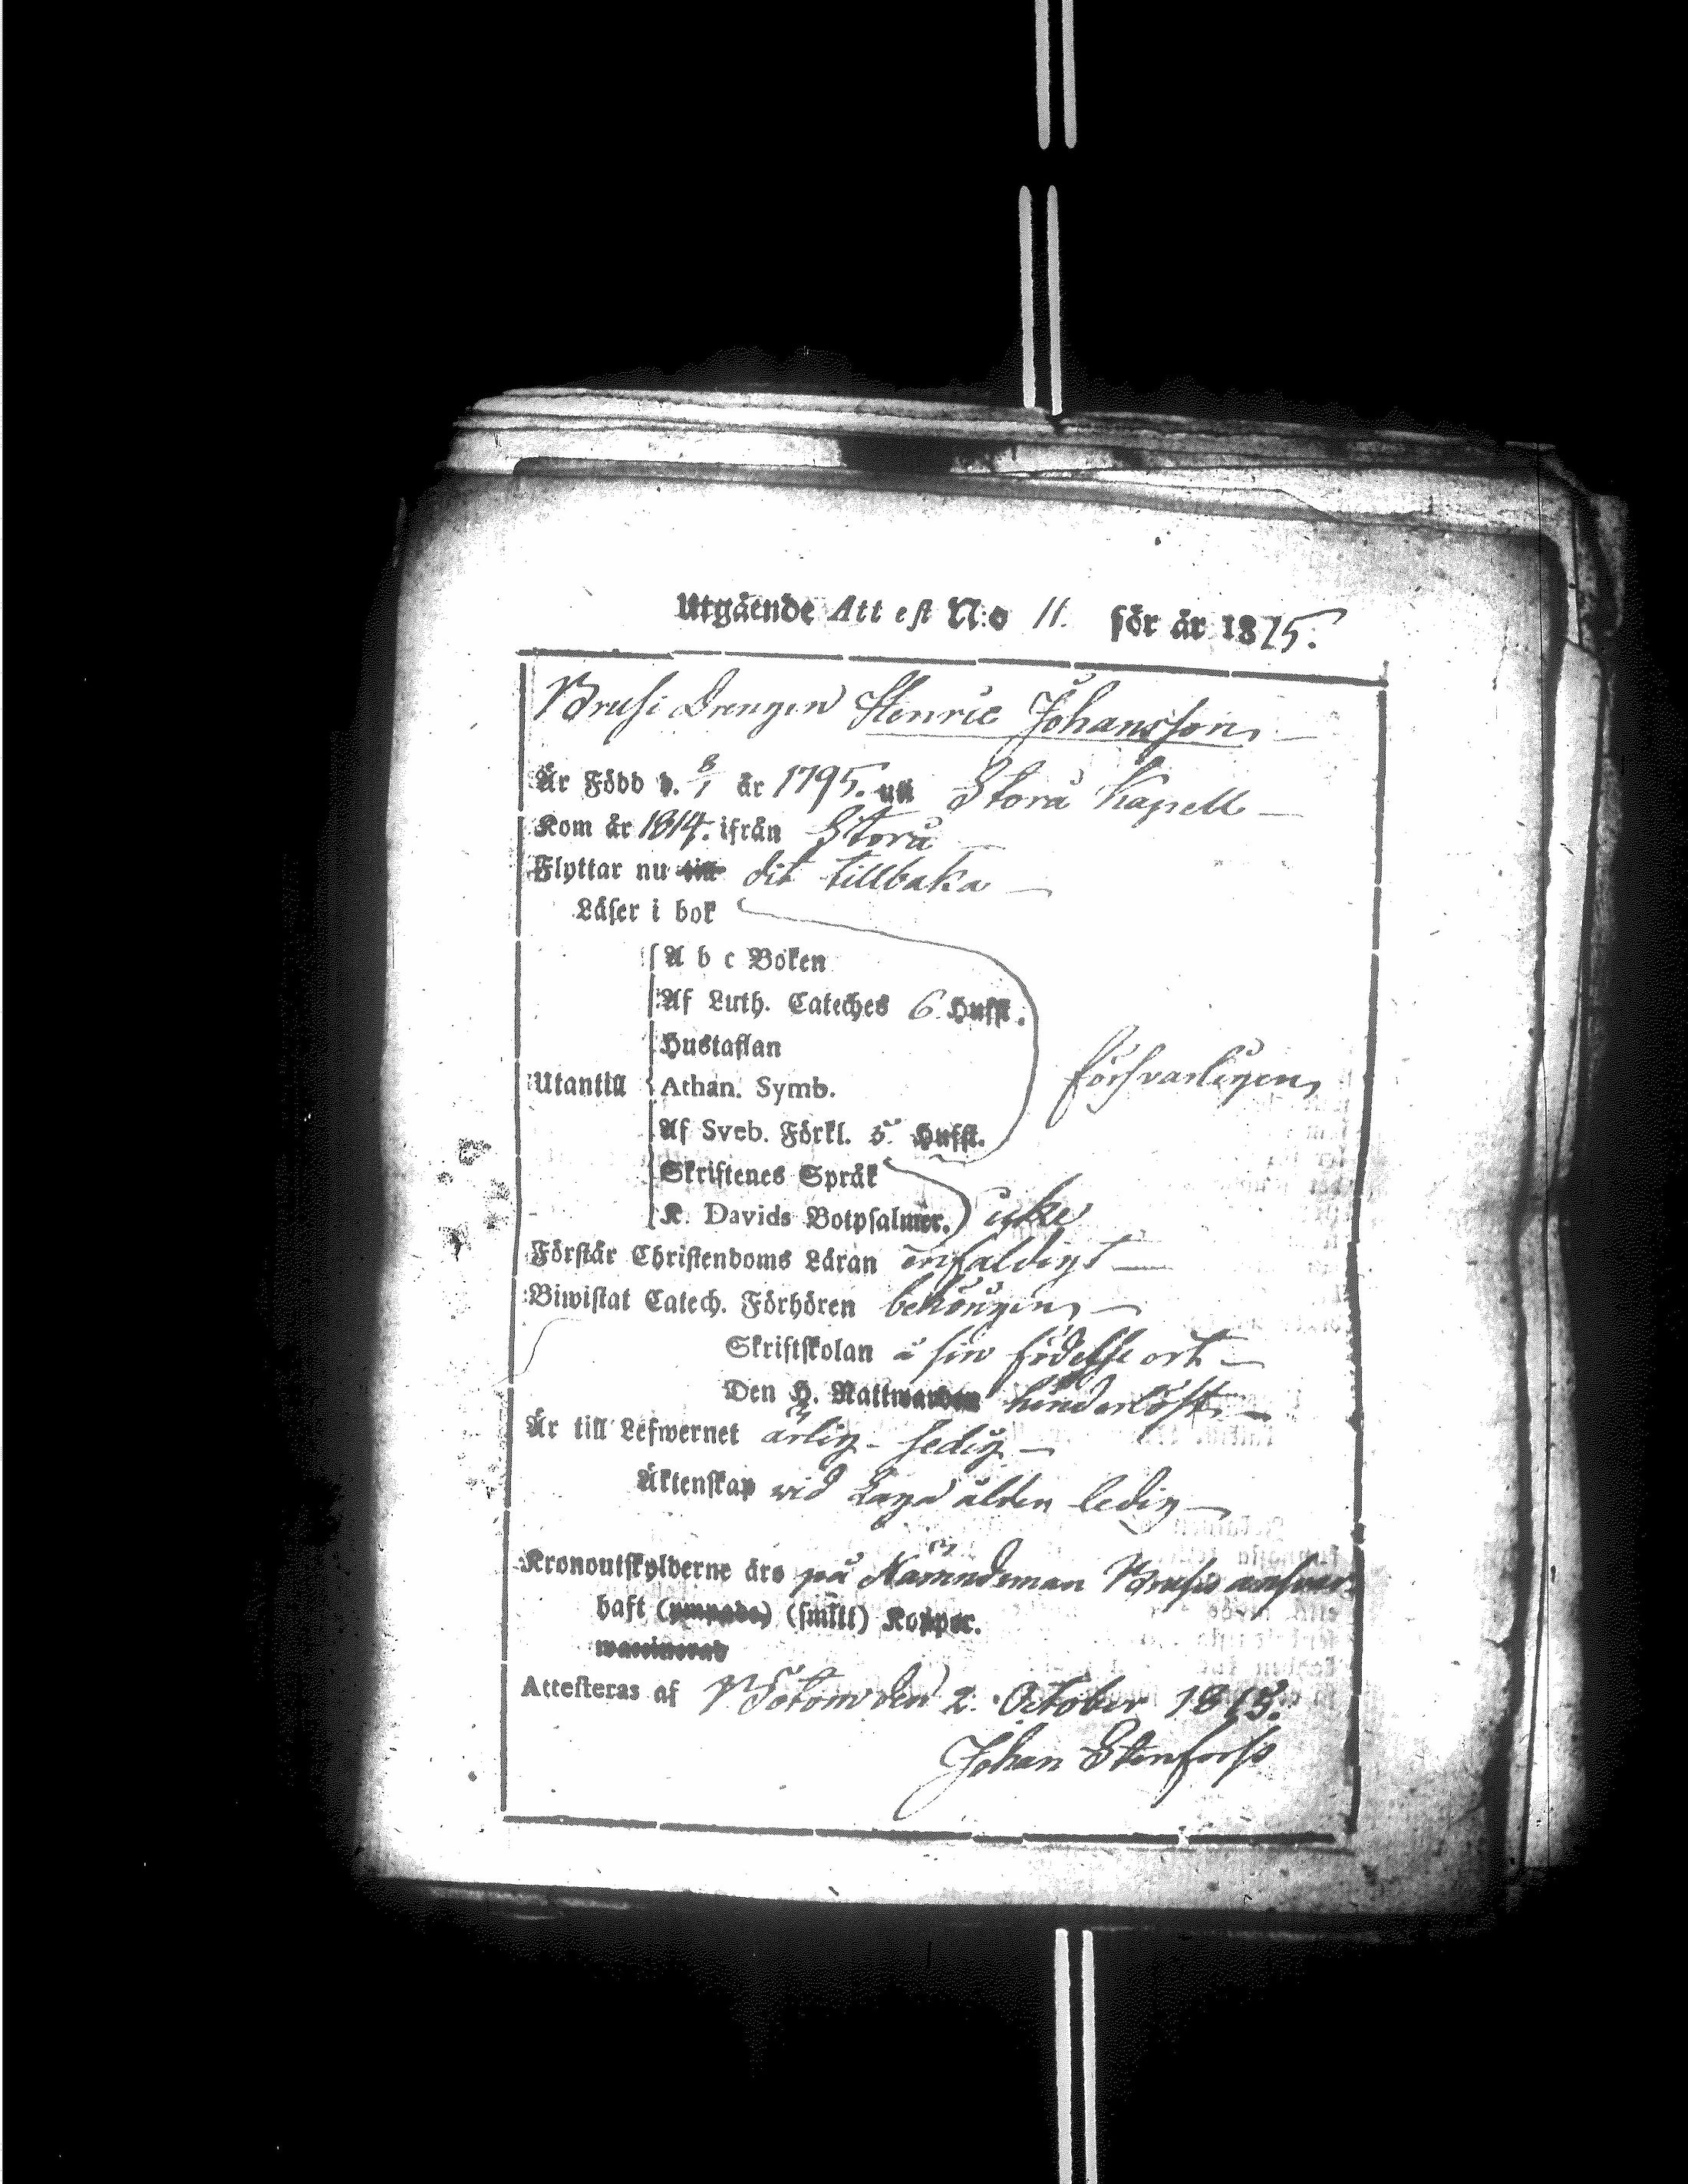 Utgående Attest N:o 11. för år 1815.
Brusi Drengen Henric Johansson
Är Född d. 8/1 år 1795. uti Storå Kapell
Kom år 1814. ifrån Storå
Flyttar nu till dit tillbaka
Läser i bok
A b c Boken
Af Luth. Cateches 6 Hufst.
Hustaflan
Utantill Athan. Symb. försvarligen
Af Sveb. Förkl. 5 Hufst.
Skriftenes Språk
K. Davids Botpsalmer. icke
Förstår Christendoms Läran enfaldigt
Biwistat Catech. Förhören behörigen
Skriftskolan å sin födelse ort
Den H. Nattwarden hinderlöst
Är till Lefwernet ärlig - sedig
Äktenskap wid Laga ålder ledig
Kronoutskylderne äro på Nämndeman Brusis answar
haft (ympade) (smitt) Koppor.
waccinerad
Attesteras af Bötom den 2. October 1815.
Johan Stenforss